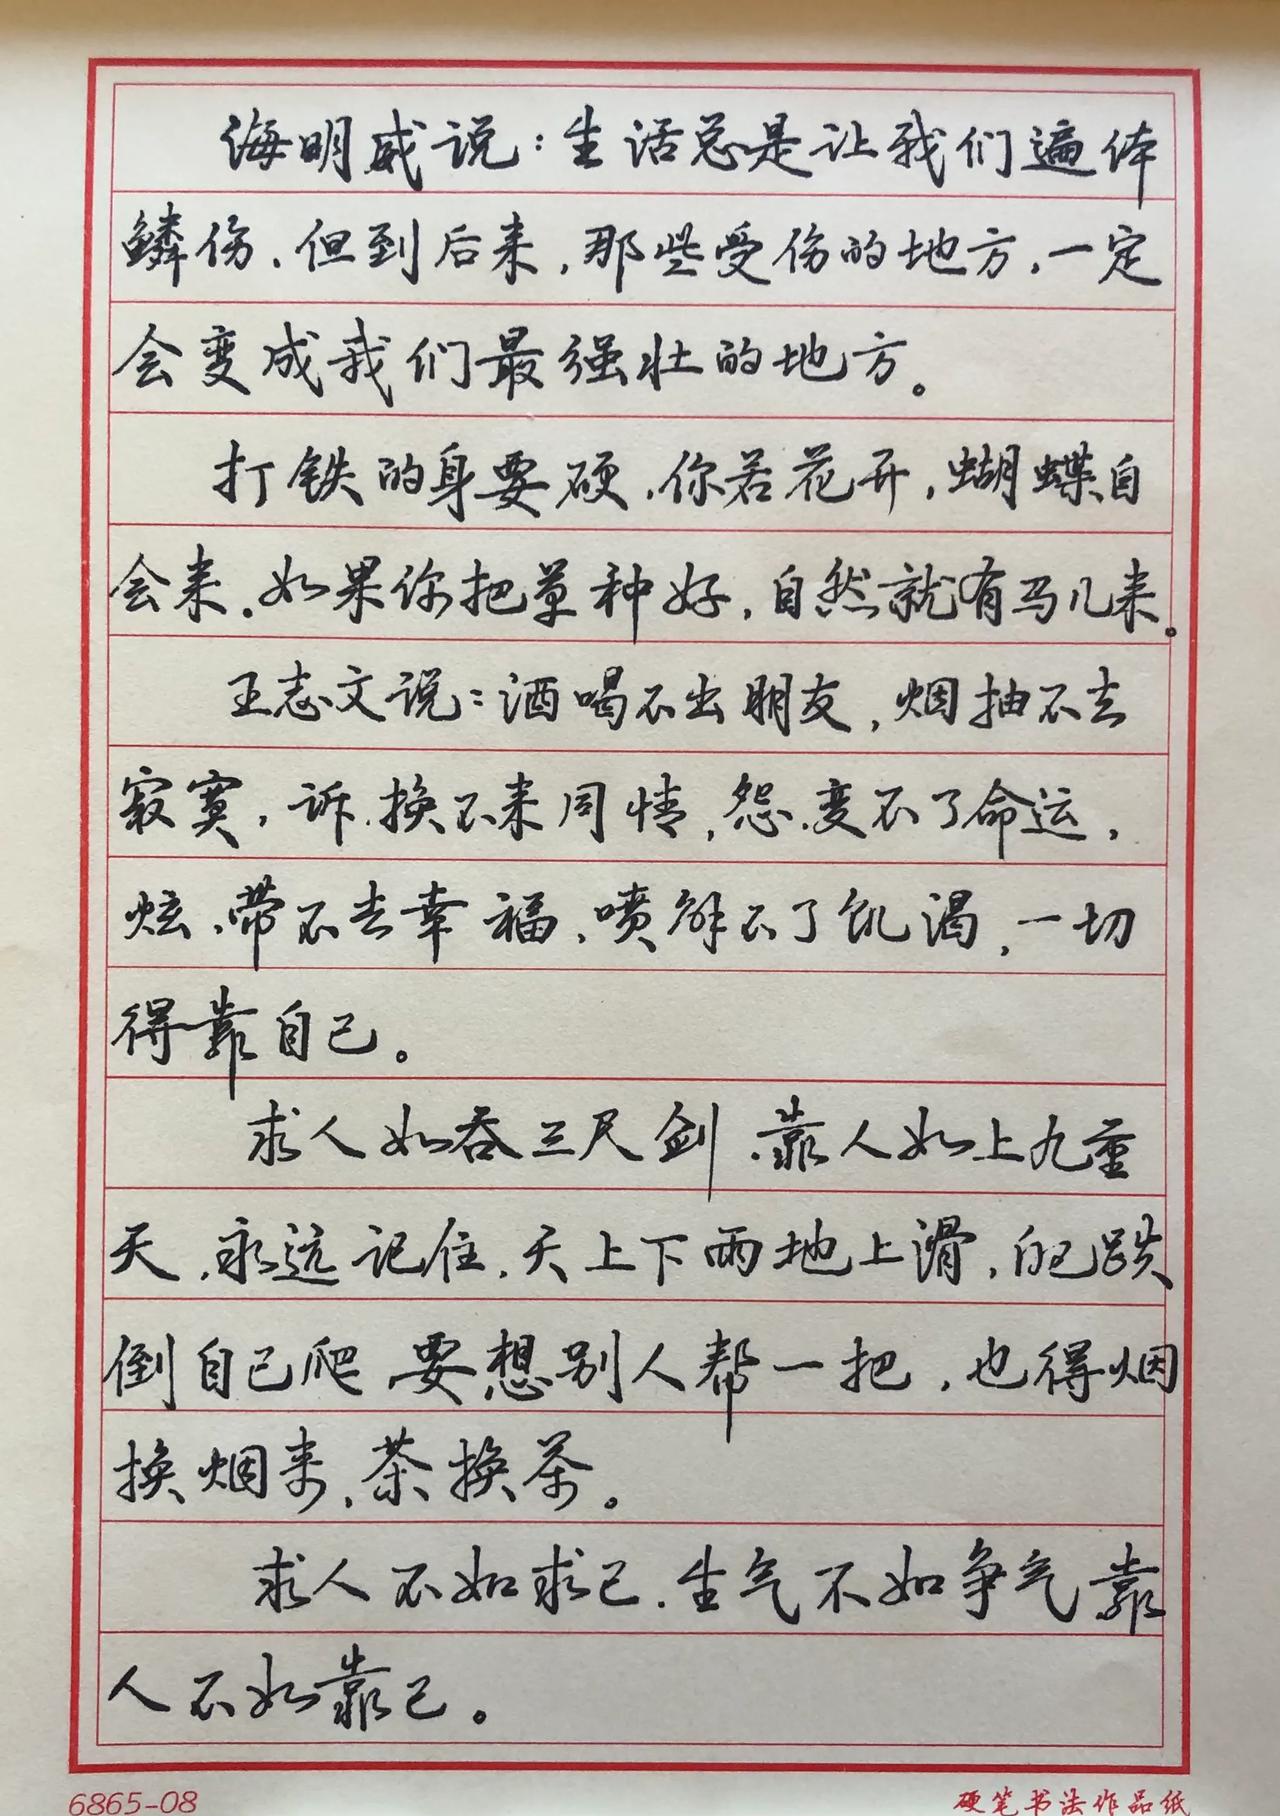 海明威说：生活总是让我们遍体
鳞伤，但到后来，那些受伤的地方，一定
会变成我们最强壮的地方。
打铁的身要硬，你若花开，蝴蝶自
会来。如果你把草种好，自然就有马儿来。
王志文说：酒喝不出朋友，烟抽不去
寂寞，诉，换不来同情，怨，变不了命运，
炫，带不去幸福，喷解不了饥渴，一切
得靠自己。
求人如吞三尺剑，靠人如上九重
天，永远记住，天上下雨地上滑，自己跌
倒自己爬，要想别人帮一把，也得烟
换烟来，茶换茶。
求人不如求己，生气不如争气，靠
人不如靠己。
6865-08
硬笔书法作品纸